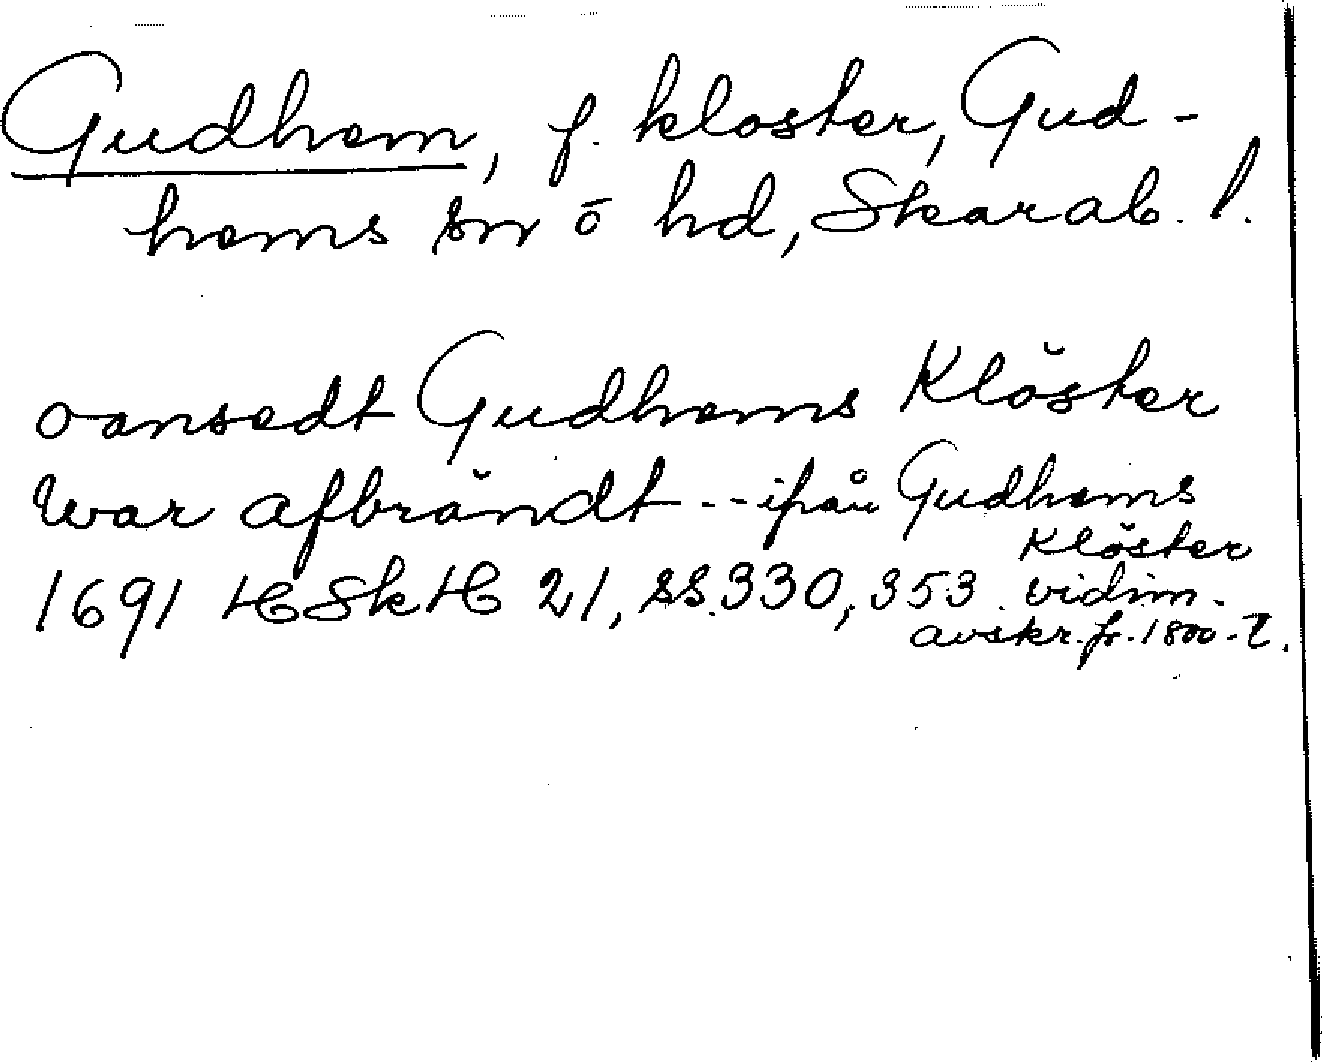 Gudhem, f. kloster, Gud-
hems sn ō hd, Skarab. l.
oansedt Gudhems Klöster
war afbrändt -- ifrån Gudhems
Klöster
1691 HSkH 21, ss. 330, 353. vidim.
avskr. fr. 1800-t.